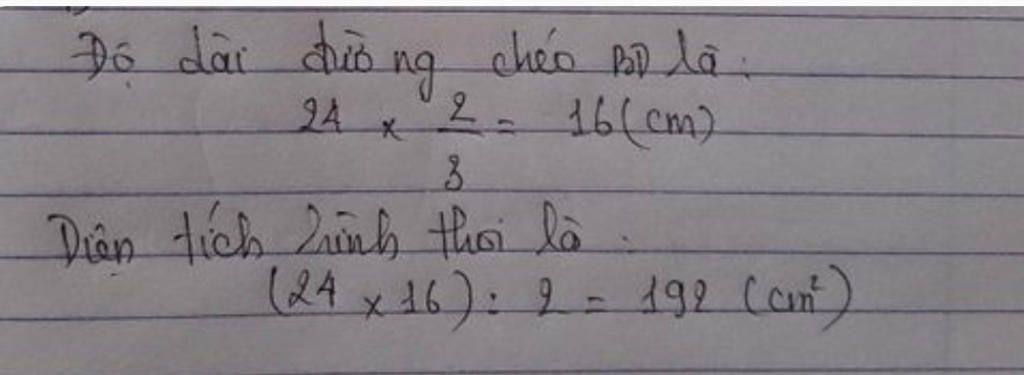 Độ dài đường chéo BD là:
24 x 2/3 = 16 (cm)
Diện tích hình thoi là:
(24 x 16) : 2 = 192 (cm²)